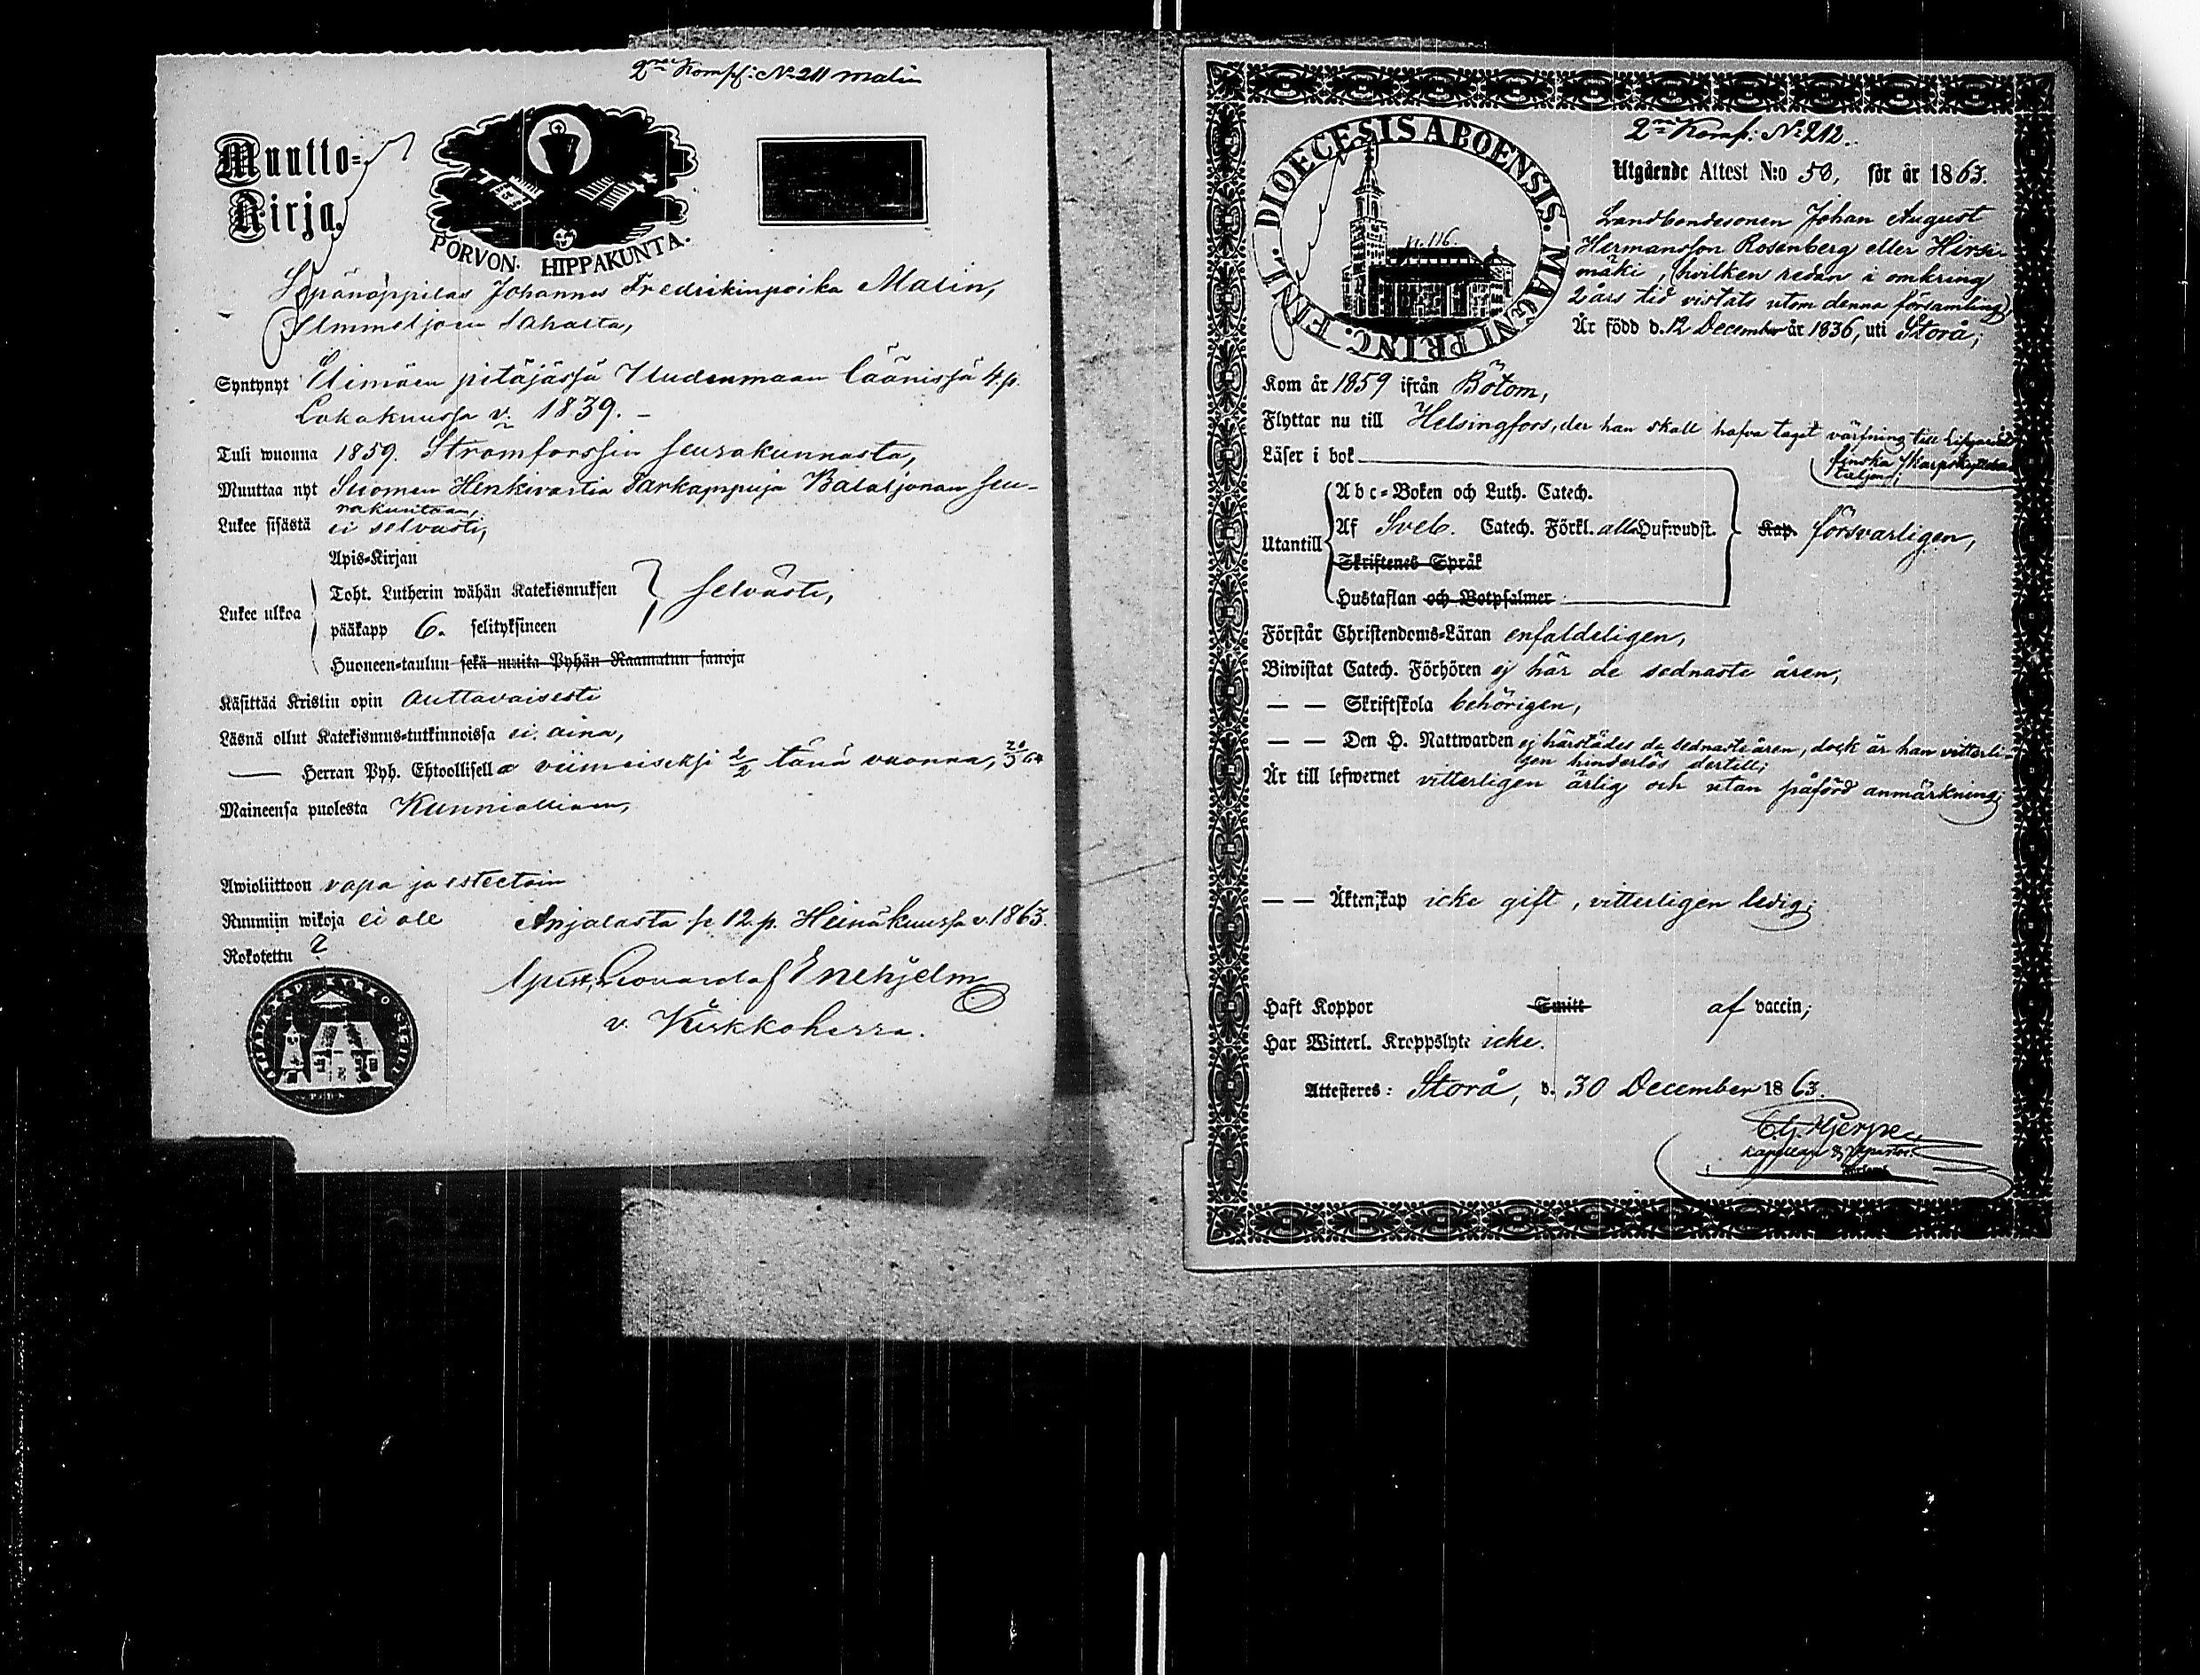 2ra Komp: No 211 Malin
Muutto-
Kirja.
PORVON. HIPPAKUNTA.
Sepänoppilas Johannes Fredrikinpoika Malin,
Ummeljoen Sahalta,
Syntynyt Elimäen pitäjässä Uudenmaan läänissä 4.p.
Lokakuussa v. 1839. –
Tuli wuonna 1859. Strömforssin seurakunnasta,
Muuttaa nyt Suomen Henkivartia Tarkappuja Bataljonan seu-
rakuntaan,
Lukee sisästä ei selvästi,
Apis-Kirjan
Toht. Lutherin wähän Katekismuksen
Lukee ulkoa
selvästi,
pääkapp 6. selityksineen
Huoneen-taulun sekä muita Pyhän Raamatun sanoja
Käsittää Kristin opin auttavaisesti
Läsnä ollut Katekismus-tutkinnoissa ei aina,
— Herran Pyh. Ehtoollisella viimeiseksi 2/2 tänä vuonna,
Maineensa puolesta Kunniallinen,
Awioliittoon vapa ja esteetöin
Ruumiin wikoja ei ole Anjalasta se 12.p. Heinäkuussa v. 1863.
Rokotettu ?
Enehjelm
v. Kirkkoherra.
DIOECESIS ABOENSIS. MAGNI PRINC. FINL.
2ra Komp: No 212.
Utgående Attest N:o 50, för år 1863.
116
Landbondesonen Johan August
Hermansson Rosenberg eller Hirsi-
mäki, hvilken redan i omkring
2 års tid vistats utom denna församling,
Är född d. 12 December år 1836, uti Storå,
Kom år 1859 ifrån Bötom,
Flyttar nu till Helsingfors, der han skall hafva tagit värfning till Lifgardets
finska Skarpskytte Ba-
taljon;
Läser i bok
Abc-Boken och Luth. Catech.
Af Sveb. Catech. Förkl. alla Hufwudst. Kap. försvarligen,
Utantill
Skriftenes Språk
Hustaflan och Botpsalmer
Förstår Christendoms-Läran enfaldeligen,
Biwistat Catech. Förhören ej här de sednaste åren,
— — Skriftskola behörigen,
— — Den H. Nattwarden ej härstädes de sednaste åren, dock är han vitterli-
gen hinderlös dertill;
Är till lefwernet vitterligen ärlig och utan påförd anmärkning;
— — Äktenskap icke gift, vitterligen ledig;
Haft Koppor Smitt af vaccin;
Har Witterl. Kroppslyte icke.
Attesteres: Storå, d. 30 December 1863.